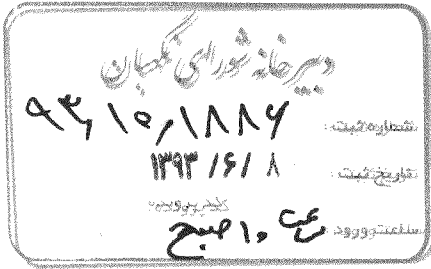 دبیرخانه شورای نگهبان
شماره ثبت: ۹۳٫۱۰٫۱۸۸۶
تاریخ ثبت: ۱۳۹۳/۶/۸
ساعت ورود: ۱۰ صبح